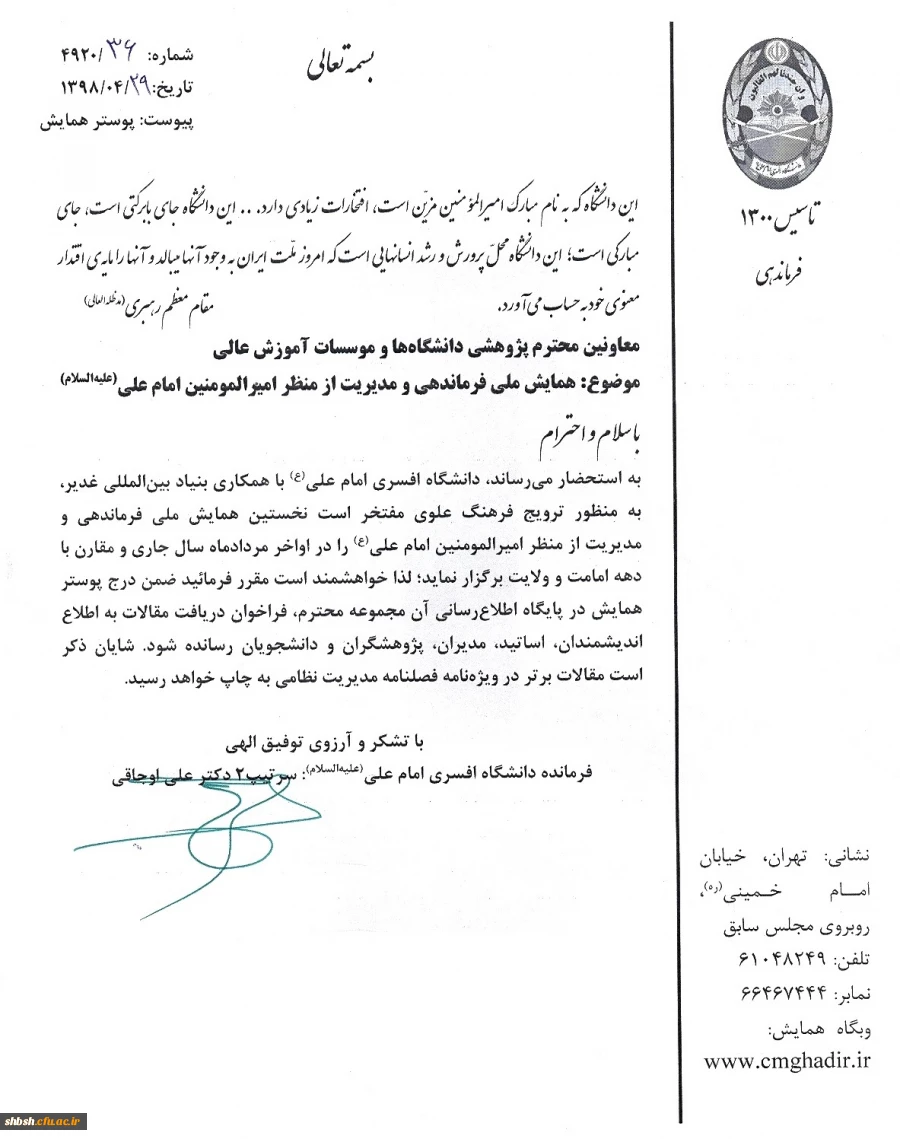 بسمه تعالی
شماره: ۴۹۲۰/۳۶
تاریخ: ۱۳۹۸/۰۴/۲۹
پیوست: پوستر همایش
تاسیس ۱۳۰۰
فرماندهی
این دانشگاه که به نام مبارک امیرالمؤمنین مزیّن است، افتخارات زیادی دارد. .. این دانشگاه جای بابرکتی است، جای
مبارکی است؛ این دانشگاه محلّ پرورش و رشد انسانهایی است که امروز ملّت ایران به وجود آنها میبالد و آنها را مایه‌ی اقتدار
معنوی خود به حساب می‌آورد. مقام معظم رهبری (مدظله العالی)
معاونین محترم پژوهشی دانشگاه‌ها و موسسات آموزش عالی
موضوع: همایش ملی فرماندهی و مدیریت از منظر امیرالمومنین امام علی(علیه‌السلام)
با سلام و احترام
به استحضار می‌رساند، دانشگاه افسری امام علی(ع) با همکاری بنیاد بین‌المللی غدیر،
به منظور ترویج فرهنگ علوی مفتخر است نخستین همایش ملی فرماندهی و
مدیریت از منظر امیرالمومنین امام علی(ع) را در اواخر مردادماه سال جاری و مقارن با
دهه امامت و ولایت برگزار نماید؛ لذا خواهشمند است مقرر فرمائید ضمن درج پوستر
همایش در پایگاه اطلاع‌رسانی آن مجموعه محترم، فراخوان دریافت مقالات به اطلاع
اندیشمندان، اساتید، مدیران، پژوهشگران و دانشجویان رسانده شود. شایان ذکر
است مقالات برتر در ویژه‌نامه فصلنامه مدیریت نظامی به چاپ خواهد رسید.
با تشکر و آرزوی توفیق الهی
فرمانده دانشگاه افسری امام علی(علیه‌السلام): سرتیپ۲ دکتر علی اوجاقی
نشانی: تهران، خیابان
امـــام خـــمینی(ره)،
روبروی مجلس سابق
تلفن: ۶۱۰۴۸۲۴۹
نمابر: ۶۶۴۶۷۴۴۴
وبگاه همایش:
www.cmghadir.ir
shbsh.cfu.ac.ir